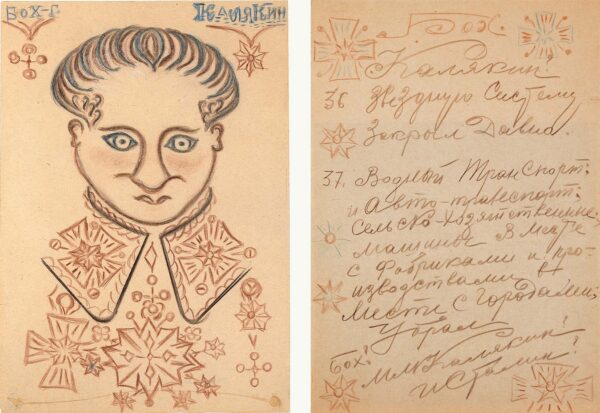 Бох-Г.
Калякин
Бох.
Калякин!
36 Звездную Систему
Закрыл Давно.
37. Водный Транспорт.
и Авто-транспорт.
Сельско-Хозяйственные
машины Вместе
с Фабриками и про-
изводствами
Вместе с Городами,
Убрал
Бох!
Калякин!
и Сталин!